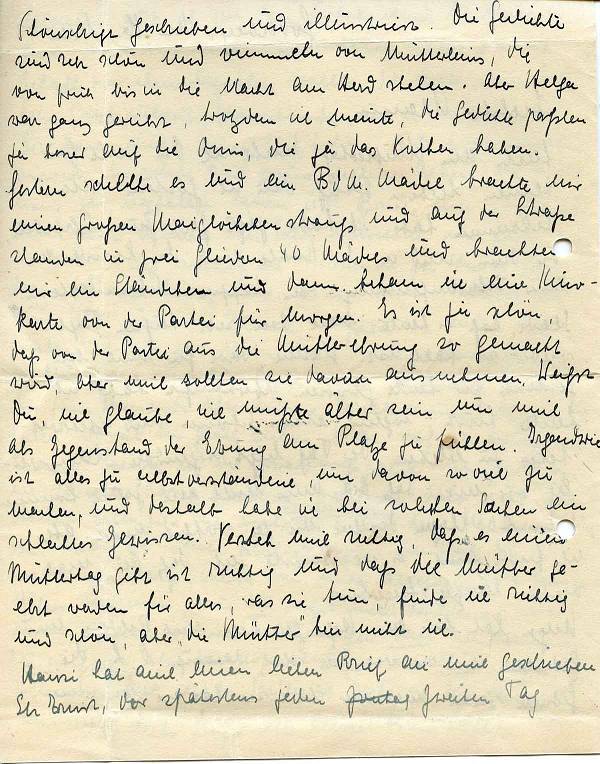 geschrieben und illustriert. Die Gedichte
sind sehr schön und wimmeln von Mütterleins, die
von früh bis in die Nacht am Herd stehen. Aber Helga
war ganz gerührt, trotzdem ich meinte, die Gedichte paßten
ja besser auf die Omi, die ja das Kochen haben.
Gestern schellte es und ein BdM. Mädel brachte mir
einen großen Maiglöckchenstrauß und auf der Straße
standen in drei Gliedern 40 Mädels und brachten
mir ein Ständchen und dann bekam ich eine Kino-
karte von der Partei für morgen. Es ist ja schön,
daß von der Partei aus die Mütterehrung so gemacht
wird, aber mich sollten sie davon ausnehmen. Weißt
Du, ich glaube, ich müßte älter sein um mich
als Gegenstand der Ehrung am Platze zu fühlen. Irgendwie
ist alles zu selbstverständlich, um davon so viel zu
machen, und deshalb habe ich bei solchen Sachen ein
schlechtes Gewissen. Versteh mich richtig, daß es einen
Muttertag gibt ist richtig und daß die Mütter ge-
ehrt werden für alles, was sie tun, finde ich richtig
und schön, aber "die Mütter" bin nicht ich.
Hansi hat auch einen lieben Brief an mich geschrieben
Ernst, der spätestens jeden zweiten Tag